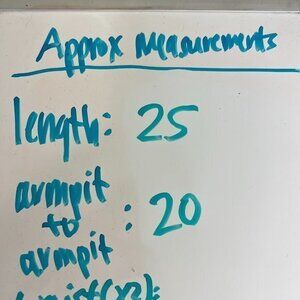 Approx Measurements
length: 25
armpit
to : 20
armpit
waist(x2):